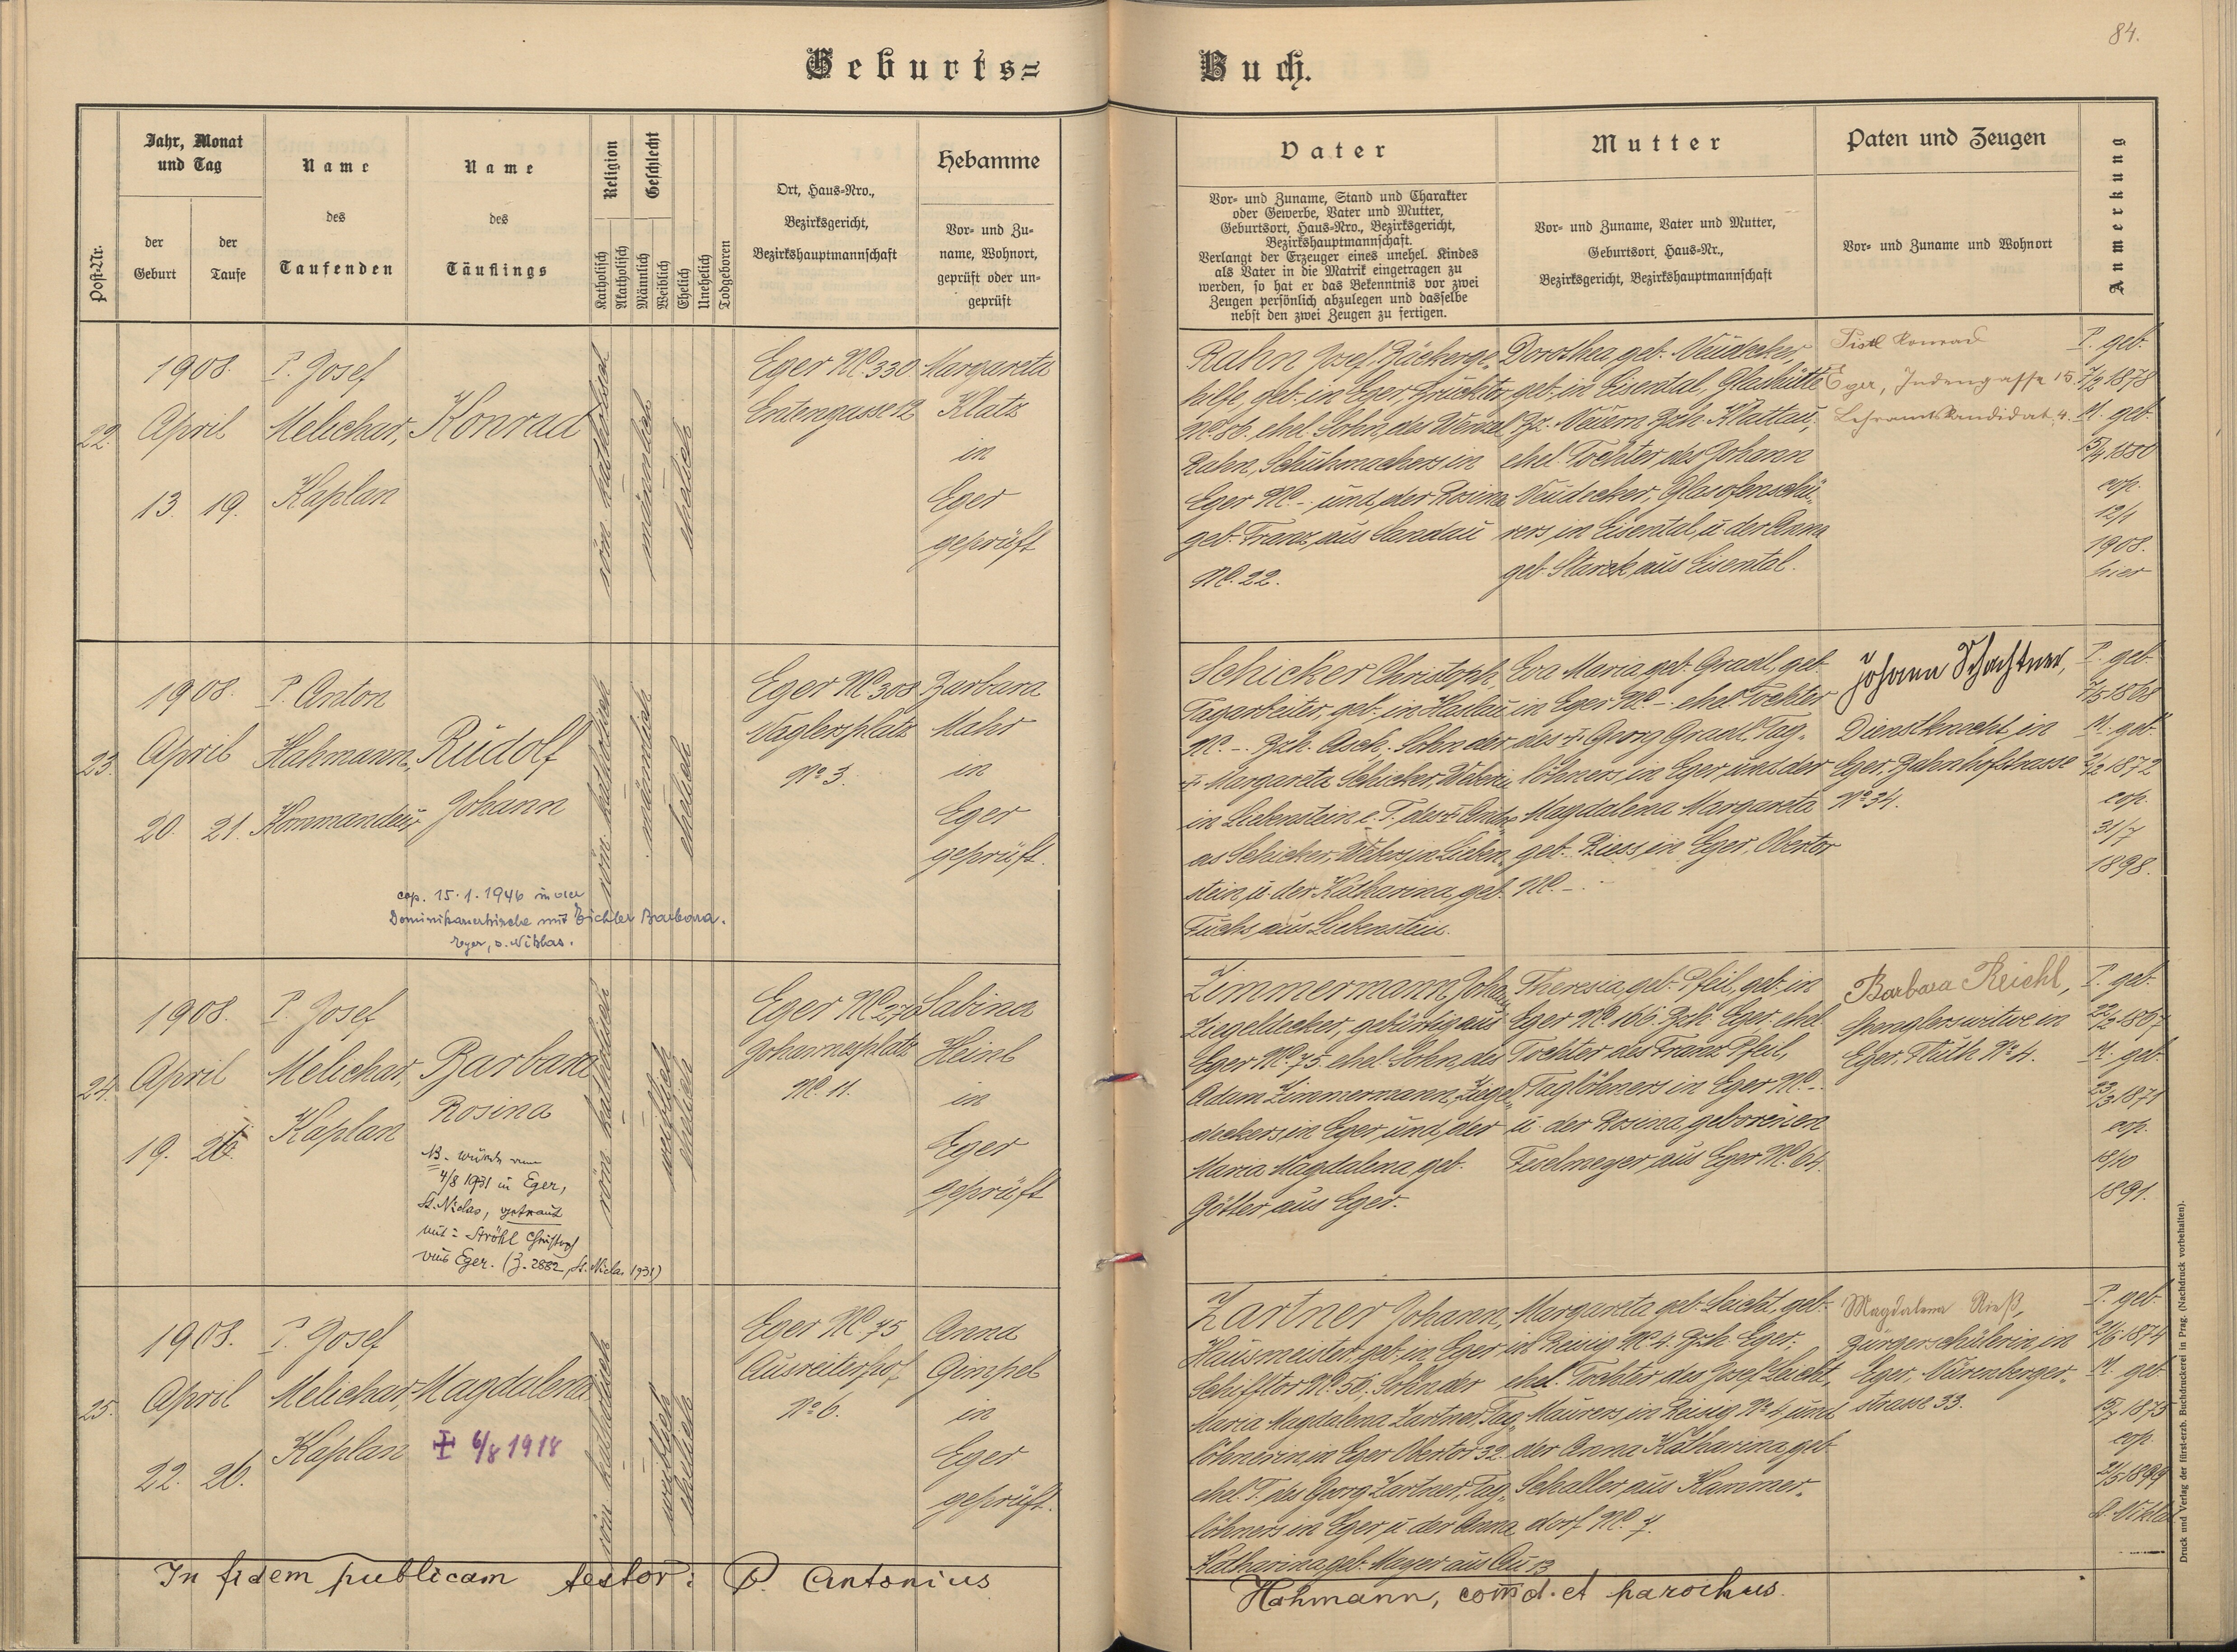 84.
Geburts=
Buch.
Post-Nr.
Jahr, Monat
und Tag
der
Geburt
der
Taufe
Name
des
Taufenden
Name
des
Täuflings
Religion
Katholisch
Akatholisch
Geschlecht
Männlich
Weiblich
Ehelich
Unehelich
Todgeboren
Ort, Haus=Nro.,
Bezirksgericht,
Bezirkshauptmannschaft
Hebamme
Vor- und Zu-
name, Wohnort,
geprüft oder un-
geprüft
Vater
Vor- und Zuname, Stand und Charakter
oder Gewerbe, Vater und Mutter,
Geburtsort, Haus=Nro., Bezirksgericht,
Bezirkshauptmannschaft.
Verlangt der Erzeuger eines unehel. Kindes
als Vater in die Matrik eingetragen zu
werden, so hat er das Bekenntnis vor zwei
Zeugen persönlich abzulegen und dasselbe
nebst den zwei Zeugen zu fertigen.
Mutter
Vor- und Zuname, Vater und Mutter,
Geburtsort, Haus=Nr.,
Bezirksgericht, Bezirkshauptmannschaft
Paten und Zeugen
Vor- und Zuname und Wohnort
Anmerkung
22.
1908.
April
13. 19.
P. Josef
Melichar,
Kaplan
Konrad
röm. katholisch
männlich
ehelich
Eger No 330
Entengasse 12
Margareta
Klatz
in
Eger
geprüft
Rahn Josef, Bäckerge-
hilfe, geb. in Eger, Brucktor
No. 86. ehel. Sohn des Wenzel
Rahn, Schuhmachers in
Eger No. - und der Rosina
geb. Franz aus Sandau
No. 22.
Dorothea geb. Neudecker,
geb. in Eisental, Glashütte
Bz. Neuern Bzh. Klattau,
ehel. Tochter des Johann
Neudecker, Glasofenschü-
rers in Eisental u. der Anna
geb. Starck aus Eisental.
Konrad
Eger, Judengasse 15.
Lehramtskandidat 4.
P. geb.
1878
M. geb.
5/4 1880
cop.
12/1
1908.
hier
23.
1908.
April
20. 21.
P. Anton
Hahmann,
Kommandeur
Rudolf
Johann
cop. 15.1.1946 in der
Dominikanerkirche mit Eichler Barbara.
Eger, s. Niklas.
röm. katholisch
männlich
ehelich
Eger No 308
Naglersplatz
No 3.
Barbara
Mahr
in
Eger
geprüft.
Schicker Christoph,
Tagarbeiter, geb. in Haslau
No. -. Bzh. Asch. Sohn der
+ Margareta Schicker, Weberin
in Liebenstein e. T. des + Andre-
as Schicker, Webers in Lieben-
stein, u. der Katharina, geb.
Fuchs aus Liebenstein.
Eva Maria geb. Gradl, geb.
in Eger No. -. ehel. Tochter
des + Georg Gradl, Tag-
löhners in Eger und der
Magdalena Margareta
geb. Riess in Eger, Obertor
No. -.
Johann Schachtner,
Dienstknecht in
Eger, Bahnhofstrasse
No 34.
P. geb.
1868
M. geb.
1872
cop.
31/7
1898.
24.
1908.
April
19. 26.
P. Josef
Melichar,
Kaplan
Barbara
Rosina
NB. wurde am
4/8 1931 in Eger,
St. Niclas, getraut
mit: Ströhl Christoph
aus Eger. (Z. 2882, St. Niclas 1931)
röm. katholisch
weiblich
ehelich
Eger No 270
Johannesplatz
No. 11.
Sabina
Heinl
in
Eger
geprüft
Zimmermann Johann
Ziegeldecker, gebürtig aus
Eger No. 75. ehel. Sohn des
Adam Zimmermann, Ziegel-
deckers in Eger und der
Maria Magdalena geb.
Götter aus Eger.
Theresia geb. Pfeil, geb. in
Eger No. 166. Bzh. Eger, ehel.
Tochter des Franz Pfeil,
Taglöhners in Eger No. -
u. der Rosina, geborenen
Feselmeyer aus Eger No. 64.
Barbara Reichl,
Spenglerswitwe in
Eger, Fluth No 4.
P. geb.
22/2 1867
M. geb.
23/3 1871
cop.
18/10
1891.
25.
1908.
April
22. 26.
P. Josef
Melichar,
Kaplan
Magdalena
6/8 1918
röm. katholisch
weiblich
ehelich
Eger No. 75
Ausreiterhof
No 6.
Anna
Gimpel
in
Eger
geprüft.
Zartner Johann,
Hausmeister, geb. in Eger
Schifftor No. 56. Sohn der
Maria Magdalena Zartner, Tag-
löhnerin in Eger Obertor 32.
ehel. T. des Georg Zartner, Tag-
löhners in Eger u. der Anna
Katharina, geb. Mayer aus Au 13
Margareta geb. Leicht, geb.
in Reisig No. 4. Bzh. Eger;
ehel. Tochter des Josef Leicht,
Maurers in Reisig No 4 und
der Anna Katharina, geb.
Schaller, aus Kammer-
dorf No. 7.
Magdalena Rieß,
Bürgerschülerin in
Eger, Nürenberger-
strasse 33.
P. geb.
1874
M. geb.
1873
cop.
1899
St. Niklas
In fidem publicam testor: P. Antonius
Hahmann, com̄d. et parochus.
Druck und Verlag der fürst-erzb. Buchdruckerei in Prag. (Nachdruck vorbehalten).